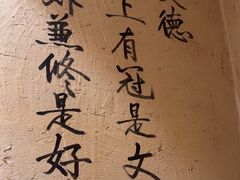 德
上有冠是文
兼修是好